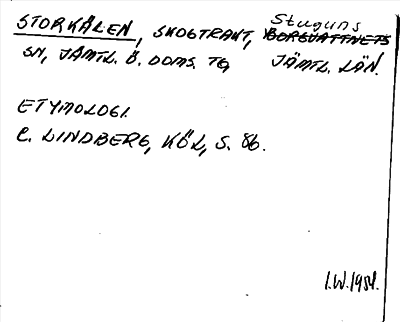 Stuguns
STORKÅLEN, SKOGTRAKT, BORGVATTNETS
SN, JÄMTL. Ö. DOMS. TG, JÄMTL. LÄN.
ETYMOLOGI.
C. LINDBERG, KÖL, S. 86.
I.W. 1954.